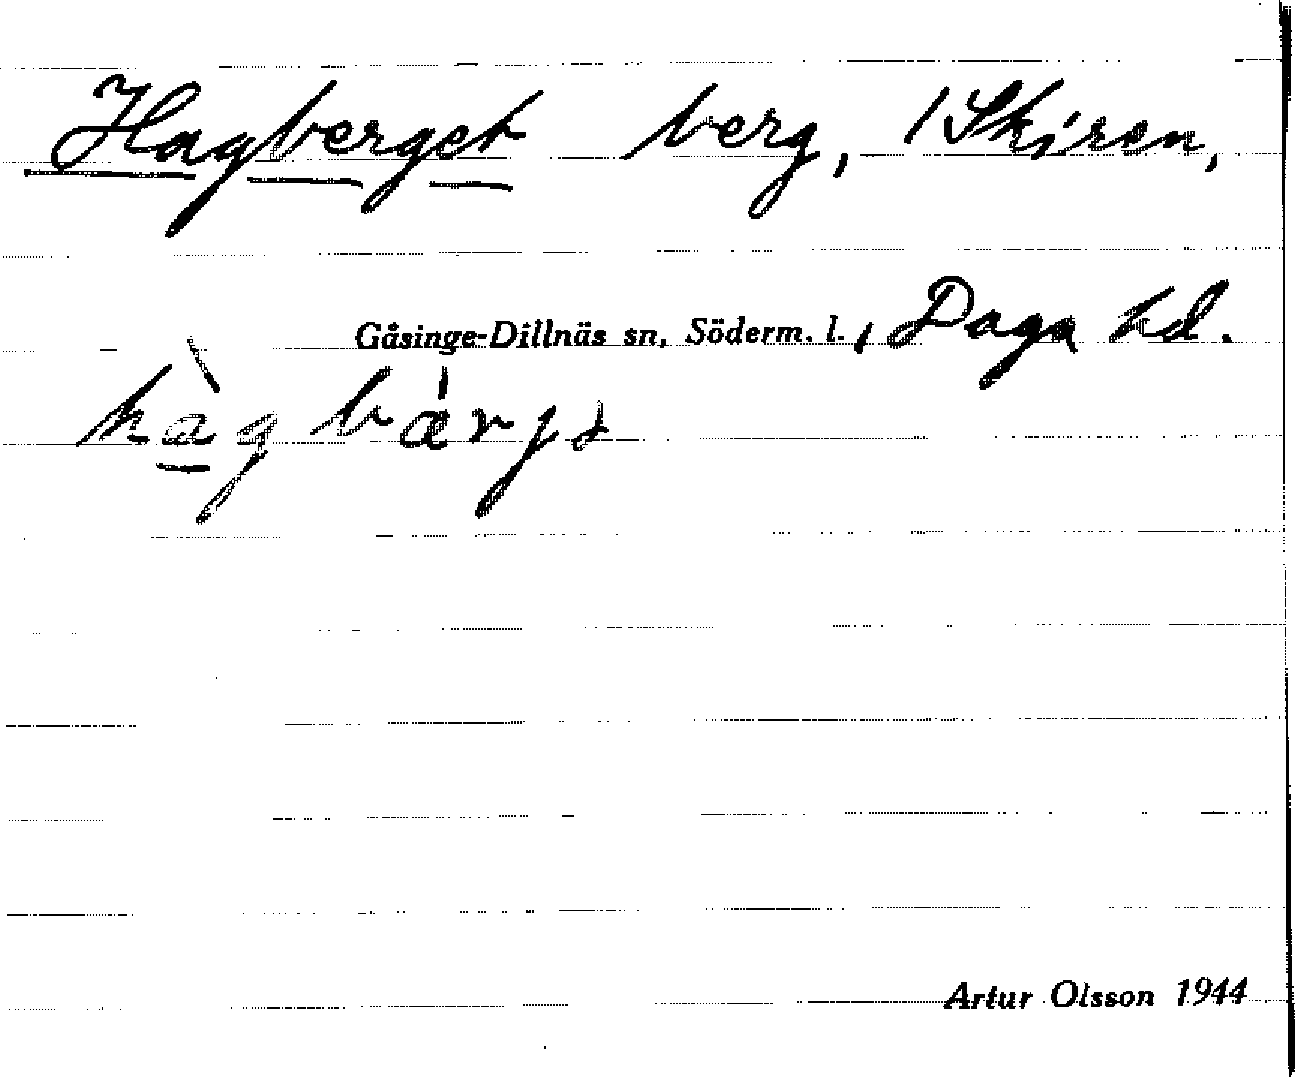 Hagberget berg, / Skiren,
Gåsinge-Dillnäs sn, Söderm. l., Daga hd.
hàg bärjə
Artur Olsson 1944